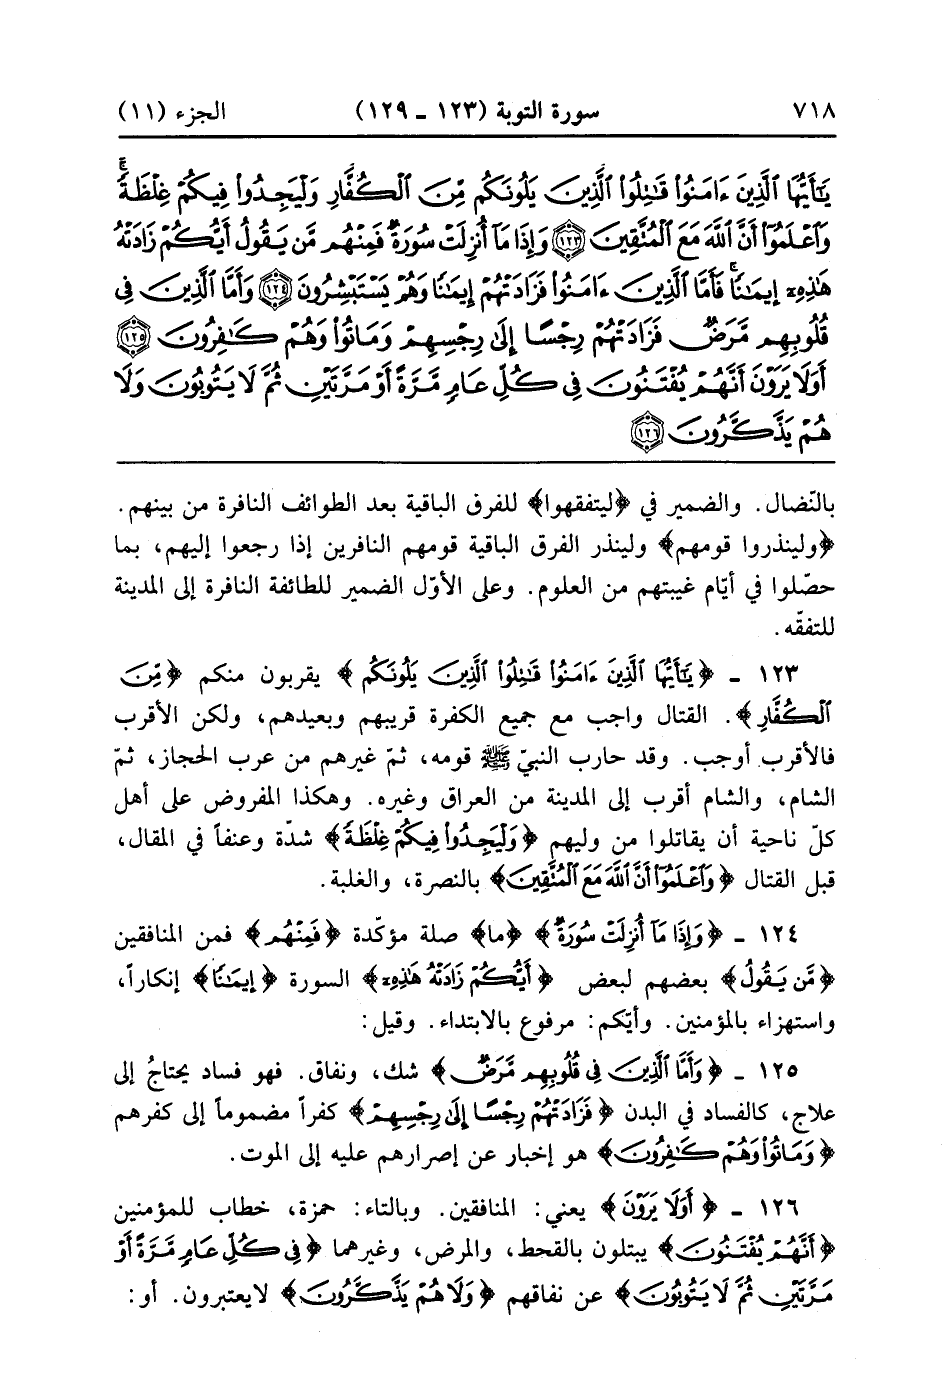 ٧١٨ سورة التوبة (١٢٣ ـ ١٢٩) الجزء (١١)
يَٰٓأَيُّهَا ٱلَّذِينَ ءَامَنُوا۟ قَٰتِلُوا۟ ٱلَّذِينَ يَلُونَكُم مِّنَ ٱلْكُفَّارِ وَلْيَجِدُوا۟ فِيكُمْ غِلْظَةً ۚ
وَٱعْلَمُوٓا۟ أَنَّ ٱللَّهَ مَعَ ٱلْمُتَّقِينَ ﴿١٢٣﴾ وَإِذَا مَآ أُنزِلَتْ سُورَةٌ فَمِنْهُم مَّن يَقُولُ أَيُّكُمْ زَادَتْهُ
هَٰذِهِۦٓ إِيمَٰنًا ۚ فَأَمَّا ٱلَّذِينَ ءَامَنُوا۟ فَزَادَتْهُمْ إِيمَٰنًا وَهُمْ يَسْتَبْشِرُونَ ﴿١٢٤﴾ وَأَمَّا ٱلَّذِينَ فِى
قُلُوبِهِم مَّرَضٌ فَزَادَتْهُمْ رِجْسًا إِلَىٰ رِجْسِهِمْ وَمَاتُوا۟ وَهُمْ كَٰفِرُونَ ﴿١٢٥﴾
أَوَلَا يَرَوْنَ أَنَّهُمْ يُفْتَنُونَ فِى كُلِّ عَامٍ مَّرَّةً أَوْ مَرَّتَيْنِ ثُمَّ لَا يَتُوبُونَ وَلَا
هُمْ يَذَّكَّرُونَ ﴿١٢٦﴾
بالنّضال. والضمير في ﴿ليتفقهوا﴾ للفرق الباقية بعد الطوائف النافرة من بينهم.
﴿ولينذروا قومهم﴾ ولينذر الفرق الباقية قومهم النافرين إذا رجعوا إليهم، بما
حصّلوا في أيّام غيبتهم من العلوم. وعلى الأوّل الضمير للطائفة النافرة إلى المدينة
للتفقّه.
١٢٣ ـ ﴿يَٰٓأَيُّهَا ٱلَّذِينَ ءَامَنُوا۟ قَٰتِلُوا۟ ٱلَّذِينَ يَلُونَكُم﴾ يقربون منكم ﴿مِّنَ
ٱلْكُفَّارِ﴾. القتال واجب مع جميع الكفرة قريبهم وبعيدهم، ولكن الأقرب
فالأقرب أوجب. وقد حارب النبيّ ﷺ قومه، ثمّ غيرهم من عرب الحجاز، ثمّ
الشام، والشام أقرب إلى المدينة من العراق وغيره. وهكذا المفروض على أهل
كلّ ناحية أن يقاتلوا من وليهم ﴿وَلْيَجِدُوا۟ فِيكُمْ غِلْظَةً﴾ شدّة وعنفاً في المقال،
قبل القتال ﴿وَٱعْلَمُوٓا۟ أَنَّ ٱللَّهَ مَعَ ٱلْمُتَّقِينَ﴾ بالنصرة، والغلبة.
١٢٤ ـ ﴿وَإِذَا مَآ أُنزِلَتْ سُورَةٌ﴾ ﴿ما﴾ صلة مؤكّدة ﴿فَمِنْهُم﴾ فمن المنافقين
﴿مَّن يَقُولُ﴾ بعضهم لبعض ﴿أَيُّكُمْ زَادَتْهُ هَٰذِهِۦٓ﴾ السورة ﴿إِيمَٰنًا﴾ إنكاراً،
واستهزاء بالمؤمنين. وأيّكم: مرفوع بالابتداء. وقيل:
١٢٥ ـ ﴿وَأَمَّا ٱلَّذِينَ فِى قُلُوبِهِم مَّرَضٌ﴾ شك، ونفاق. فهو فساد يحتاجُ إلى
علاج، كالفساد في البدن ﴿فَزَادَتْهُمْ رِجْسًا إِلَىٰ رِجْسِهِمْ﴾ كفراً مضموماً إلى كفرهم
﴿وَمَاتُوا۟ وَهُمْ كَٰفِرُونَ﴾ هو إخبار عن إصرارهم عليه إلى الموت.
١٢٦ ـ ﴿أَوَلَا يَرَوْنَ﴾ يعني: المنافقين. وبالتاء: حمزة، خطاب للمؤمنين
﴿أَنَّهُمْ يُفْتَنُونَ﴾ يبتلون بالقحط، والمرض، وغيرهما ﴿فِى كُلِّ عَامٍ مَّرَّةً أَوْ
مَرَّتَيْنِ ثُمَّ لَا يَتُوبُونَ﴾ عن نفاقهم ﴿وَلَا هُمْ يَذَّكَّرُونَ﴾ لايعتبرون. أو: